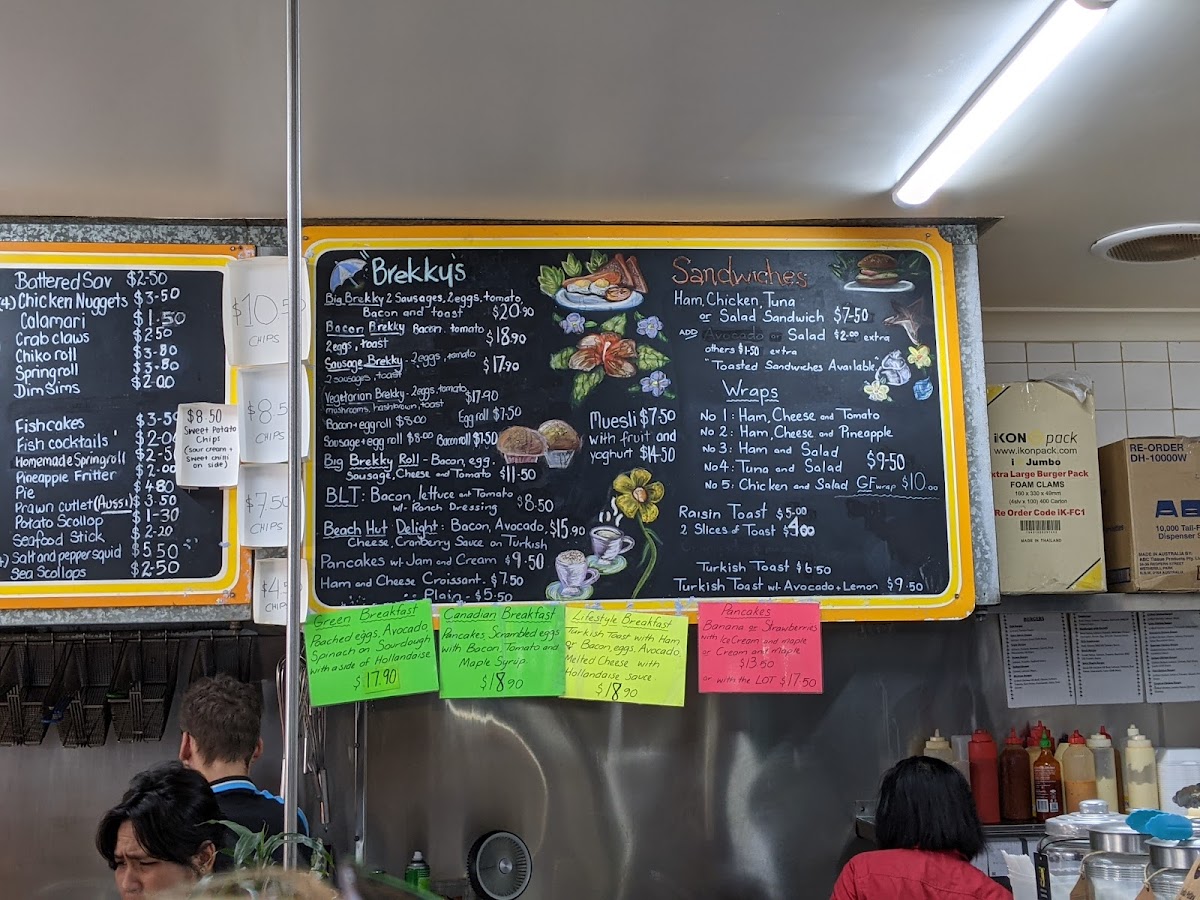 Battered Sav $2.50
(4) Chicken Nuggets $3.50
Calamari $1.50
Crab claws $2.50
Chiko roll $3.80
Springroll $3.50
Dim Sims $2.00
Fishcakes $3.5
Fish cocktails $2.0
Homemade Springroll $2.5
Pineapple Fritter $2.00
Pie $4.80
Prawn cutlet (Aussi) $3.50
Potato Scallop $1.30
Seafood Stick $2.20
Salt and pepper squid $5.50
Sea Scallops $2.50
$10.50
CHIPS
$8.5
CHIPS
$7.50
CHIPS
$4.5
CHIPS
$8.50
Sweet Potato
Chips
(sour cream +
sweet chilli
on side)
"Brekky's
Big Brekky 2 Sausages, 2 eggs, tomato
Bacon and toast $20.90
Bacon Brekky Bacon, tomato
2 eggs, toast $18.90
Sausage Brekky - 2 eggs, tomato
2 sausages, toast $17.90
Vegetarian Brekky - 2 eggs, tomato
mushrooms, hashbrown, toast $17.90
Bacon + egg roll $8.00 Egg roll $7.50
Sausage + egg roll $8.00 Bacon roll $7.50
Big Brekky Roll - Bacon, egg,
Sausage, Cheese and Tomato $11.50
BLT: Bacon, lettuce and Tomato
w/- Ranch Dressing $8.50
Beach Hut Delight: Bacon, Avocado, $15.90
Cheese, Cranberry Sauce on Turkish
Pancakes w/- Jam and Cream $9.50
Ham and Cheese Croissant - $7.50
Plain - $5.50
Muesli $7.50
with fruit and
yoghurt $14.50
Sandwiches
Ham, Chicken, Tuna
or Salad Sandwich $7.50
ADD Avocado or Salad $2.00 extra
others $1.50 extra
"Toasted Sandwiches Available"
Wraps
No 1: Ham, Cheese and Tomato
No 2: Ham, Cheese and Pineapple
No 3: Ham and Salad
No 4: Tuna and Salad $9.50
No 5: Chicken and Salad GF wrap $10.00
Raisin Toast $5.00
2 Slices of Toast $4.00
Turkish Toast $6.50
Turkish Toast w/- Avocado + Lemon $9.50
Green Breakfast
Poached eggs, Avocado
Spinach on Sourdough
with a side of Hollandaise
$17.90
Canadian Breakfast
Pancakes, Scrambled eggs
with Bacon, Tomato and
Maple Syrup
$18.90
Lifestyle Breakfast
Turkish Toast with Ham
or Bacon, eggs, Avocado
Melted Cheese with
Hollandaise Sauce
$18.90
Pancakes
Banana or Strawberries
with Ice Cream and maple
or Cream and Maple
$13.50
or with the LOT $17.50
iKON pack
www.ikonpack.com
i Jumbo
xtra Large Burger Pack
FOAM CLAMS
Re Order Code iK-FC1
MADE IN THAILAND
RE-ORDER
DH-10000W
10,000 Tall-F
Dispenser S
MADE IN AUSTRALIA BY: